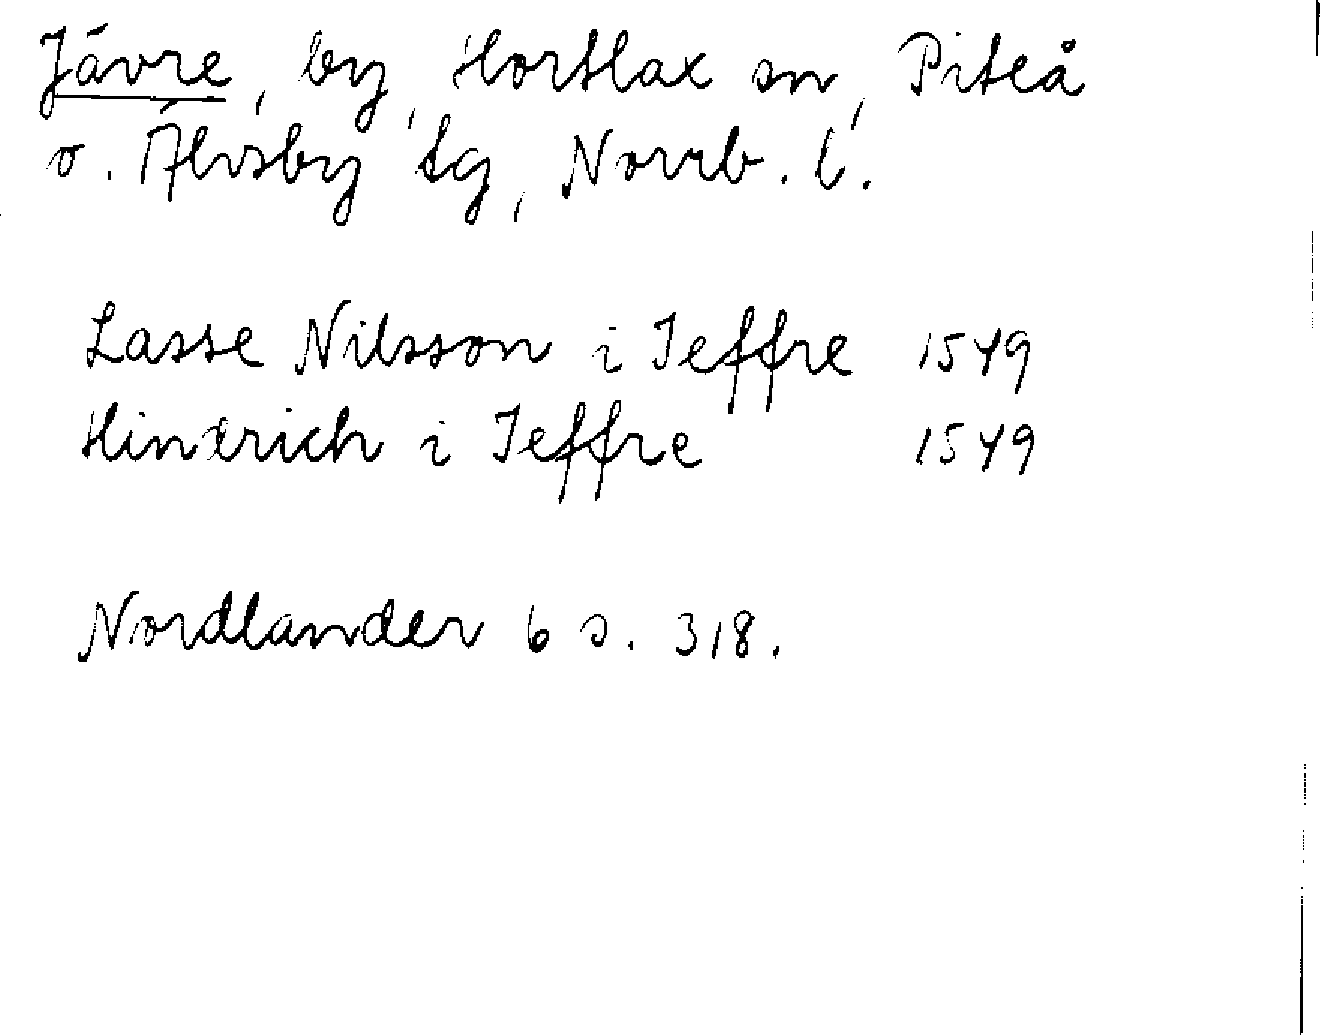 Jävre, by, Hortlax sn, Piteå
o. Älvsby tg, Norrb. l.
Lasse Nilsson i Jeffre 1549
Hindrich i Jeffre 1549
Nordlander 6 s. 318.